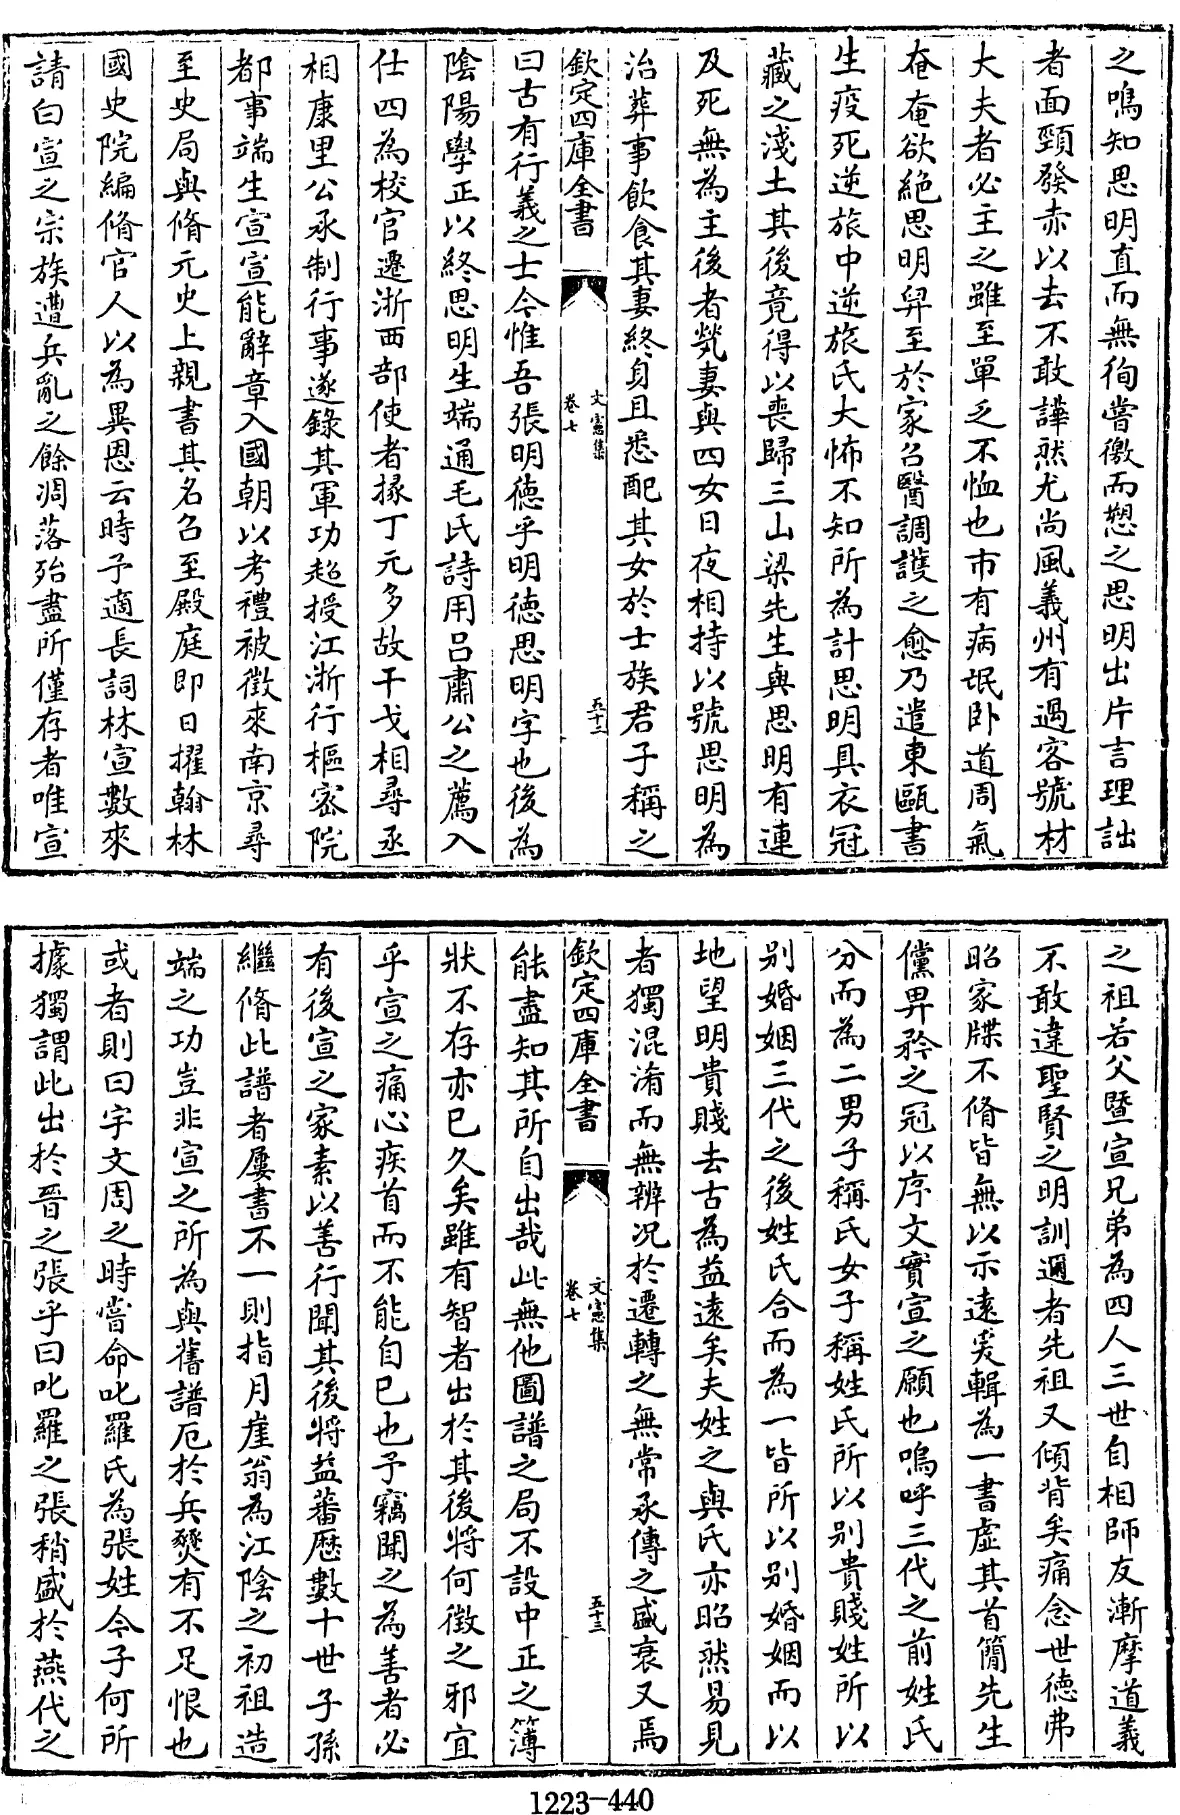 之鳴知思明直而無徇嘗徼而愬之思明出片言理詘
者面頸發赤以去不敢譁然尤尚風義州有過客號材
大夫者必主之雖至單乏不恤也市有病氓卧道周氣
奄奄欲絶思明舁至於家召醫調護之愈乃遣東甌書
生疫死逆旅中逆旅氏大怖不知所為計思明具衣冠
藏之淺土其後竟得以喪歸三山梁先生與思明有連
及死無為主後者煢妻與四女日夜相持以號思明為
治葬事飲食其妻終身且悉配其女於士族君子稱之
欽定四庫全書
文憲集
卷七
五十二
曰古有行義之士今惟吾張明徳乎明徳思明字也後為
陰陽學正以終思明生端通毛氏詩用吕肅公之薦入
仕四為校官遷浙西部使者掾丁元多故干戈相尋丞
相康里公承制行事遂錄其軍功超授江浙行樞密院
都事端生宣宣能辭章入國朝以考禮被徵來南京尋
至史局與脩元史上親書其名召至殿庭即日擢翰林
國史院編脩官人以為異恩云時予適長詞林宣數來
請曰宣之宗族遭兵亂之餘凋落殆盡所僅存者唯宣
之祖若父暨宣兄弟為四人三世自相師友漸摩道義
不敢違聖賢之明訓邇者先祖又傾背矣痛念世徳弗
昭家牒不脩皆無以示遠爰輯為一書虚其首簡先生
儻畀矜之冠以序文實宣之願也嗚呼三代之前姓氏
分而為二男子稱氏女子稱姓氏所以别貴賤姓所以
别婚姻三代之後姓氏合而為一皆所以别婚姻而以
地望明貴賤去古為益遠矣夫姓之與氏亦昭然易見
者獨混淆而無辨况於遷轉之無常承傳之盛衰又焉
欽定四庫全書
文憲集
卷七
五十三
能盡知其所自出哉此無他圖譜之局不設中正之簿
狀不存亦已久矣雖有智者出於其後將何徵之邪宜
乎宣之痛心疾首而不能自已也予竊聞之為善者必
有後宣之家素以善行聞其後將益蕃厯數十世子孫
繼脩此譜者屢書不一則指月崖翁為江陰之初祖造
端之功豈非宣之所為與舊譜厄於兵燹有不足恨也
或者則曰宇文周之時嘗命叱羅氏為張姓今子何所
據獨謂此出於晉之張乎曰叱羅之張稍盛於燕代之
1223-440